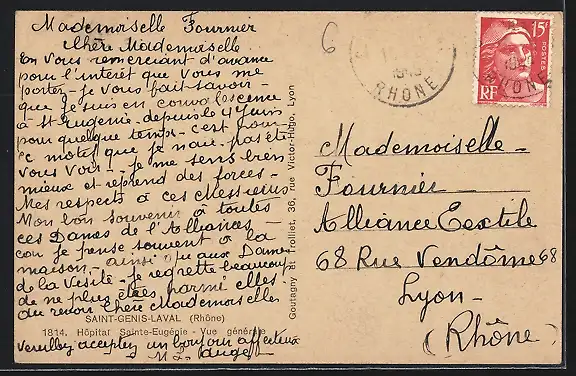 Mademoiselle Fournier
Chère Mademoiselle
En vous remerciant d'avance
pour l'intéret que vous me
portez - je vous fait savoir -
que je suis en convalescence
a St Eugénie - depuis le 4 Juin
pour quelque temps - c'est pour
ce motif que je n'ai pas été
vous voir - je me sens bien
mieux et reprend des forces -
Mes respects à ces Messieurs
Mon bon souvenir à toutes
ces Dames de l'Alliance -
car je pense souvent à la
maison - ainsi qu'aux Dames
de la Visite - je regrette beaucoup
de ne plus être parmi elles.
au revoir Chère Mademoiselle.
SAINT-GENIS-LAVAL (Rhône)
1814. Hôpital Sainte-Eugénie - Vue générale
Veuillez acceptez un bonjour affectueux
Goutagny et Trolliet, 36, rue Victor-Hugo, Lyon
6
1949
RHONE
15F
POSTES
RF
RHONE
Mademoiselle -
Fournier
Alliance Textile
68 Rue Vendôme 68
Lyon -
(Rhône)